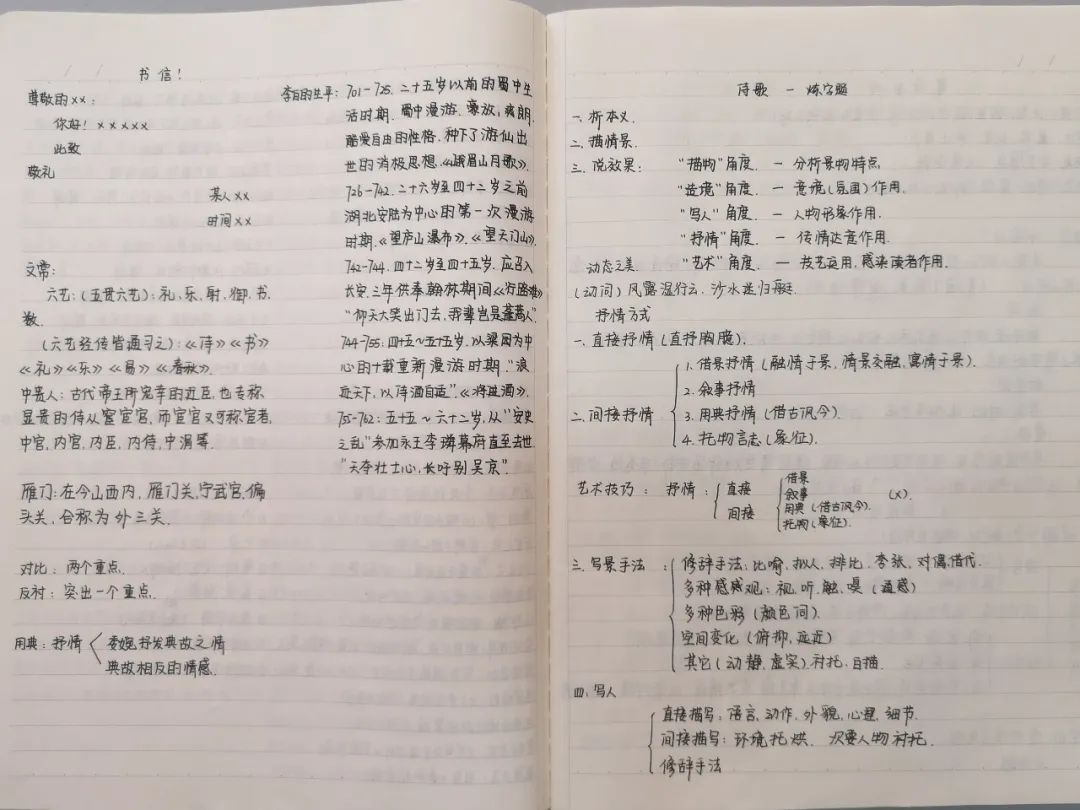 书信!
尊敬的××:
你好! ×××××
此致
敬礼
某人××
时间××
文常:
六艺:(五贯六艺):礼、乐、射、御、书、
数.
(六艺经传皆通习之):《诗》《书》
《礼》《乐》《易》《春秋》.
中贵人:古代帝王所宠幸的近臣,也专称
显贵的侍从宦官,而宦官又可称宦者,
中官,内官,内臣,内侍,中涓等.
雁门:在今山西内,雁门关,宁武官,偏
头关,合称为外三关.
对比:两个重点.
反衬:突出一个重点.
用典:抒情
委婉抒发典故之情
典故相反的情感.
李白的生平:701-725.二十五岁以前的蜀中生
活时期.蜀中漫游、豪放,爽朗,
酷爱自由的性格.种下了游仙出
世的消极思想.《峨眉山月歌》.
726-742.二十六岁至四十二岁之前
湖北安陆为中心的第一次漫游
时期.《望庐山瀑布》.《望天门山》.
742-744.四十二岁至四十五岁.应召入
长安.三年供奉翰林期间《行路难》
“仰天大笑出门去,我辈岂是蓬蒿人”.
744-755:四十五~五十五岁,以梁园为中
心的十载重新漫游时期.“浪
迹天下,以诗酒自适”.《将进酒》.
755-762:五十五~六十二岁,从“安史
之乱”参加永王李璘幕府直至去世.
“天夺壮士心,长吁别吴京”.
诗歌 — 炼字题
一、析本义.
二、描情景.
三、说效果: “描物”角度. — 分析景物特点
“造境”角度. — 意境(氛围)作用.
“写人”角度. — 人物形象作用.
“抒情”角度. — 传情达意作用.
动态之美. “艺术”角度. — 技艺运用,感染读者作用.
(动词)风露湿行云,沙水迷归艇.
抒情方式
一、直接抒情(直抒胸臆).
二、间接抒情
1.借景抒情(融情于景,情景交融,寓情于景).
2.叙事抒情
3.用典抒情(借古讽今).
4.托物言志(象征).
艺术技巧: 抒情:
直接
间接
借景
叙事
用典(借古讽今).
托物(象征).
(×).
三、写景手法:
修辞手法:比喻、拟人、排比、夸张、对偶、借代.
多种感观:视、听、触、嗅(通感)
多种色彩(颜色词).
空间变化(俯仰,远近)
其它(动静,虚实)衬托,白描.
四、写人
直接描写:语言,动作,外貌,心理,细节.
间接描写:环境托烘. 次要人物衬托.
修辞手法